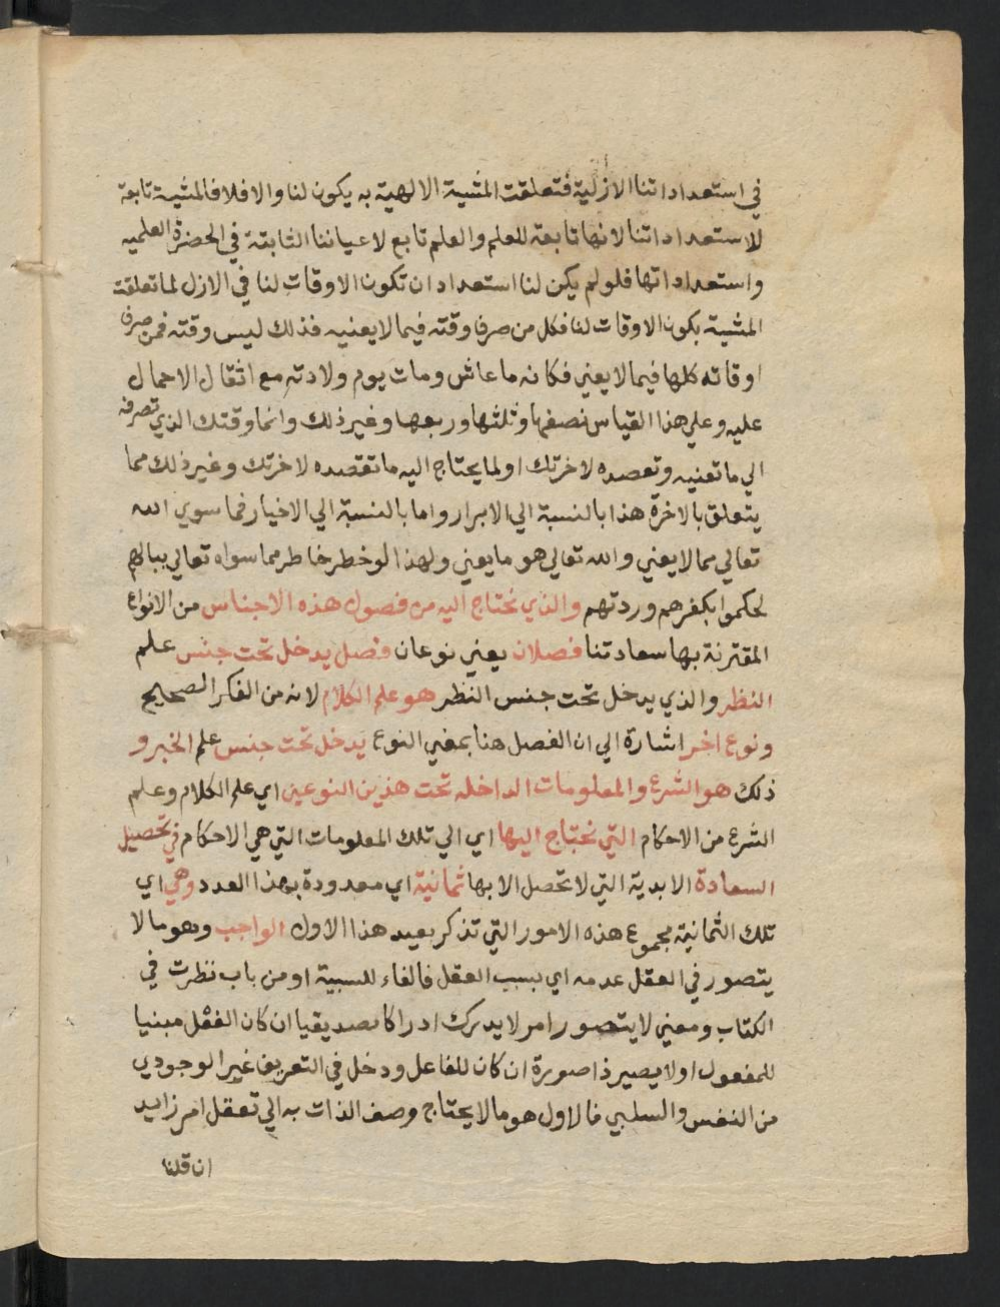 في استعداداتنا الازلية فتعلقت المشية الالهية به يكون لنا والا فلا فالمشية تابعة
لاستعداداتنا لانها تابعة للعلم والعلم تابع لاعياننا الثابتة في الحضرة العلميه
واستعداداتها فلو لم يكن لنا استعداد ان تكون الاوقات لنا في الازل لما تعلقت
المشية بكون الاوقات لنا فكل من صرف وقته فيما لا يعنيه فذلك ليس وقته فمن صرف
اوقاته كلها فيما لا يعني فكانه ما عاش ومات يوم ولادته مع اثقال الاحمال
عليه وعلي هذا القياس نصفها وثلثها وربعها وغير ذلك وانما وقتك الذي تصرفه
الي ما تعنيه وتقصده لاخرتك او لما يحتاج اليه ما تقصده لاخرتك وغير ذلك مما
يتعلق بالاخرة هذا بالنسبة الي الابرار واما بالنسبة الي الاخيار فما سوي الله
تعالي مما لا يعني والله تعالي هو ما يعني ولهذا لو خطر خاطر مما سواه تعالي ببالهم
لحكموا بكفرهم وردتهم والذي نحتاج اليه من فصول هذه الاجناس من الانواع
المقترنة بها سعادتنا فصلان يعني نوعان فصل يدخل تحت جنس علم
النظر والذي يدخل تحت جنس النظر هو علم الكلام لانه من الفكر الصحيح
ونوع اخر اشارة الي ان الفصل هنا بمعني النوع يدخل تحت جنس علم الخبر و
ذلك هو الشرع والمعلومات الداخله تحت هذين النوعين اي علم الكلام وعلم
الشرع من الاحكام التي نحتاج اليها اي الي تلك المعلومات التي هي الاحكام في تحصيل
السعادة الابدية التي لا تحصل الا بها ثمانية اي معدودة بهذا العدد وهي اي
تلك الثمانية مجموع هذه الامور التي تذكر بعيد هذا الاول الواجب وهو ما لا
يتصور في العقل عدمه اي بسبب العقل فالفاء للسببية او من باب نظرت في
الكتاب ومعني لا يتصور امر لا يدرك ادراكا تصديقيا ان كان الفعل مبنيا
للمفعول او لا يصير ذا صورة ان كان للفاعل ودخل في التعريف غير الوجودي
من النفس والسلبي فالاول هو ما لا يحتاج وصف الذات به الي تعقل امر زايد
ان قلنا